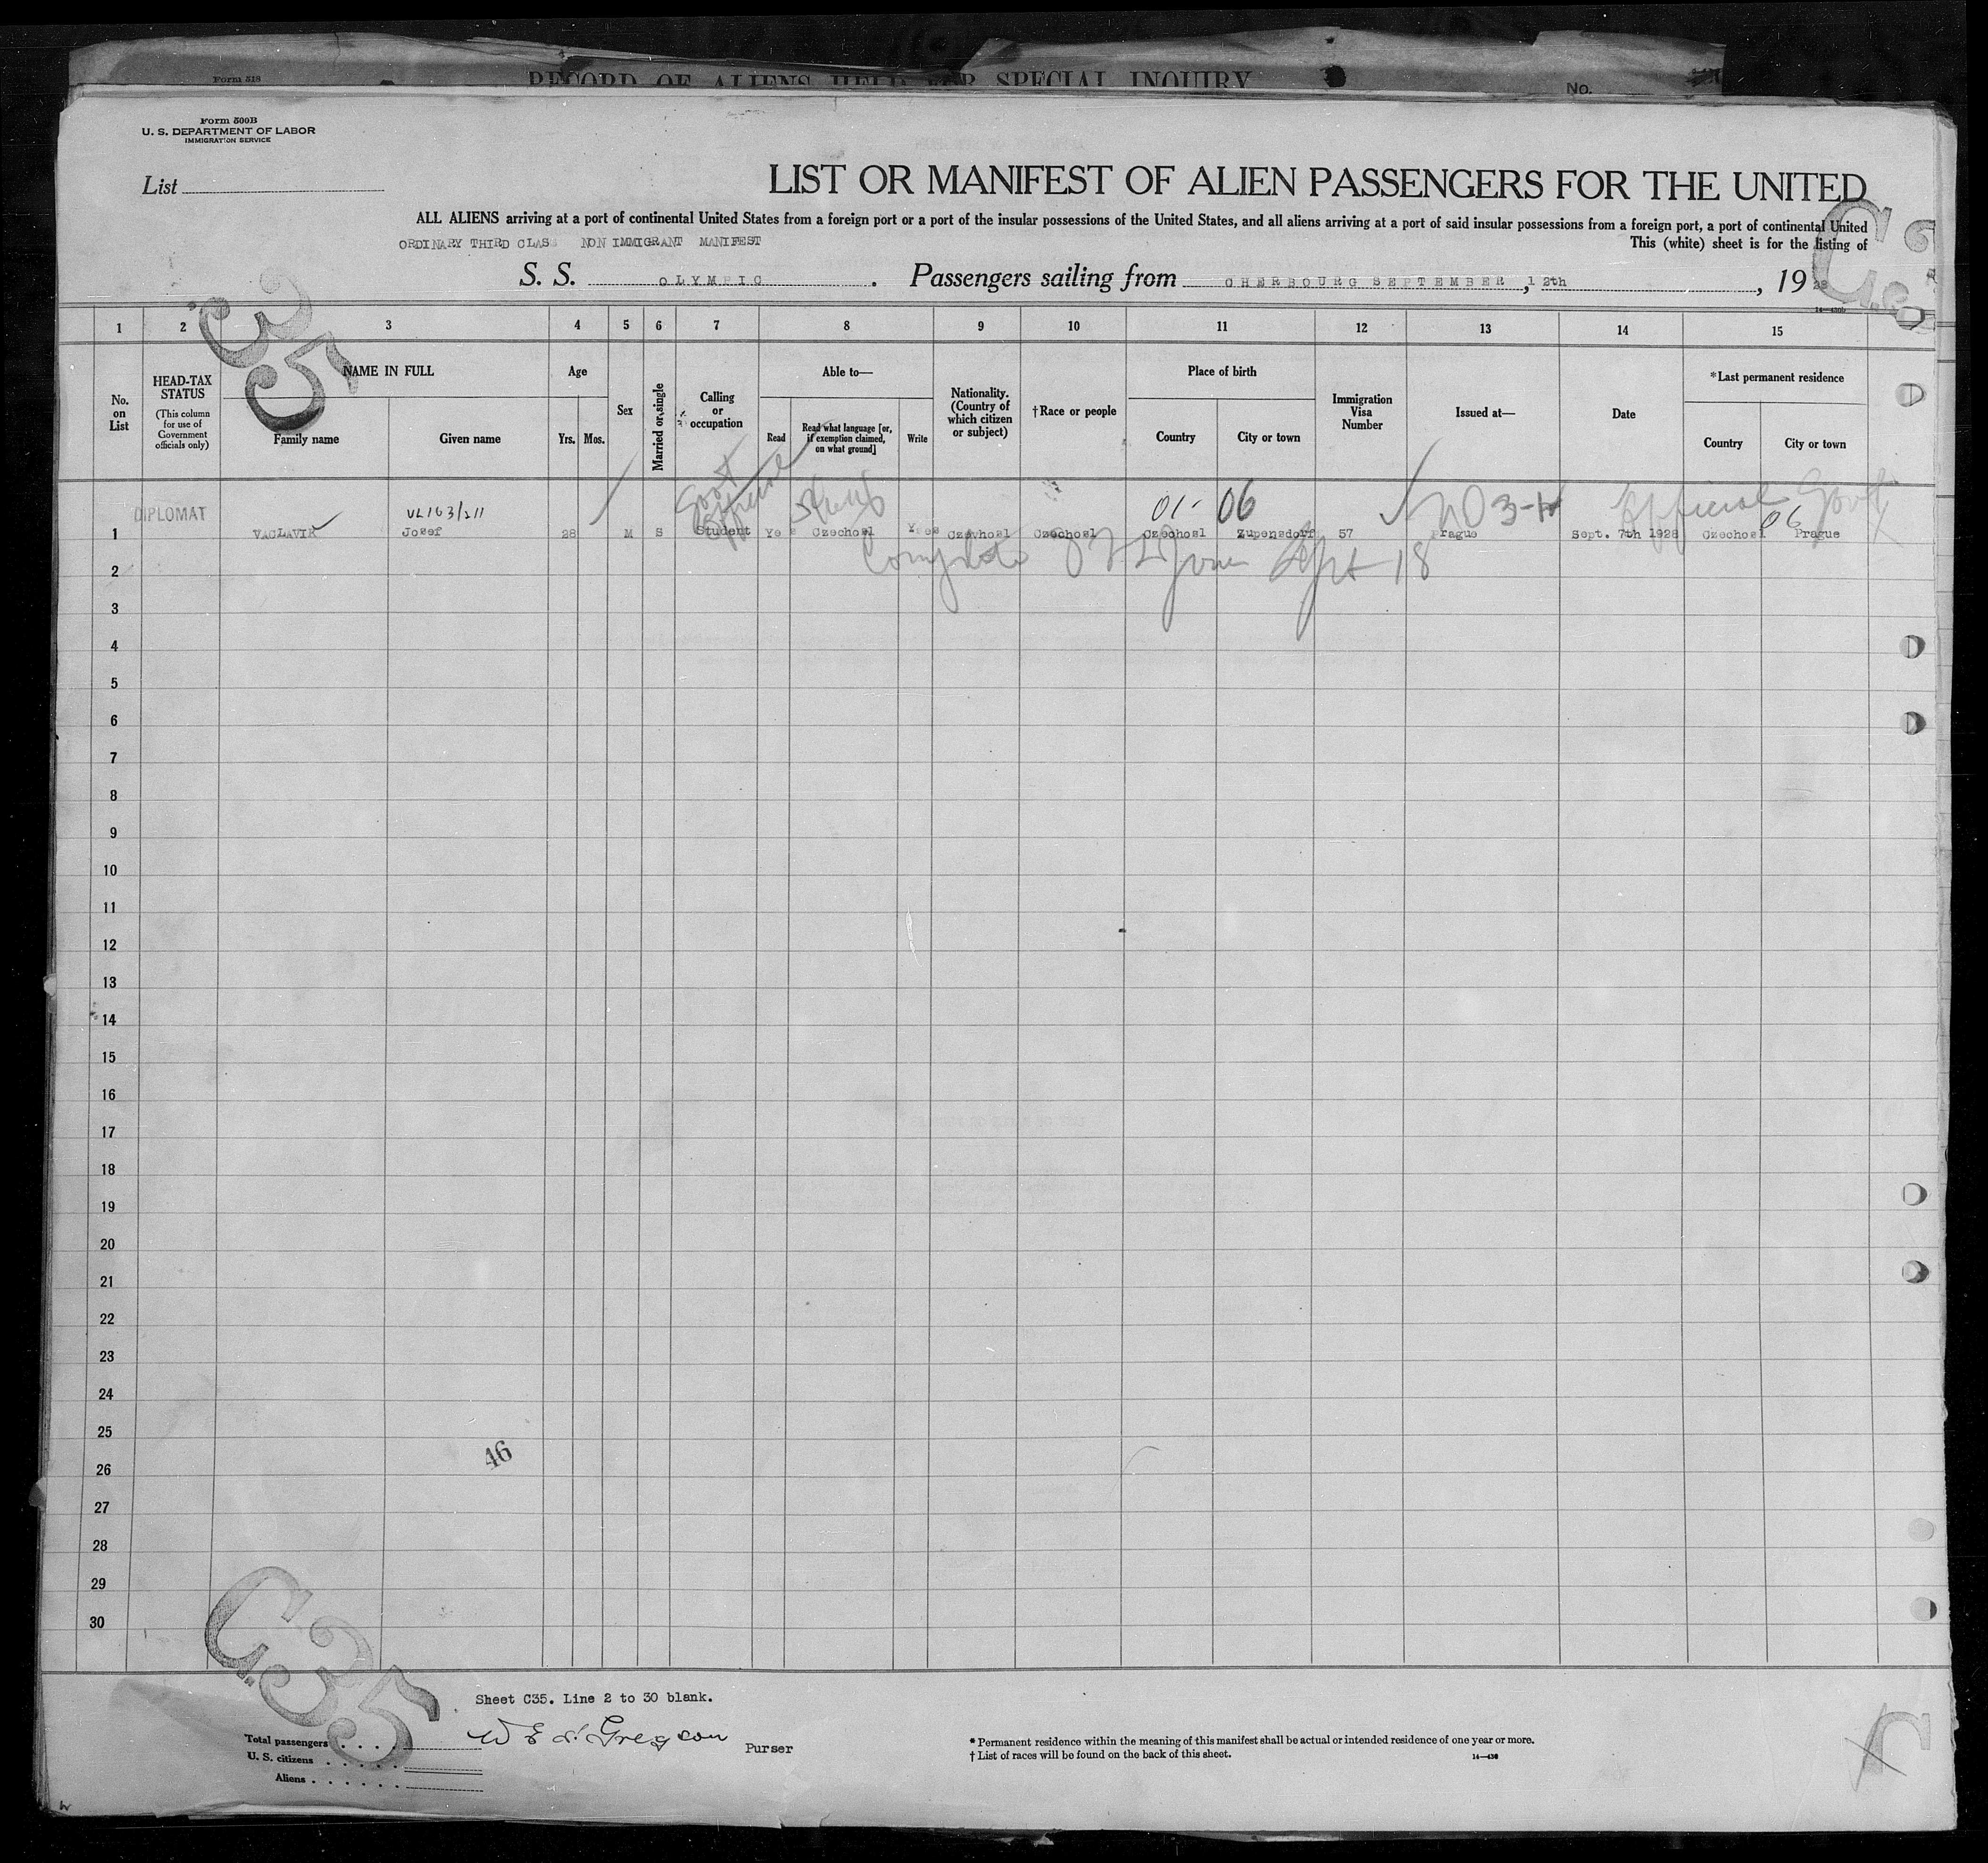 Form 518
RECORD OF ALIENS HELD FOR SPECIAL INQUIRY
No.
Form 500B
U. S. DEPARTMENT OF LABOR
IMMIGRATION SERVICE
List
LIST OR MANIFEST OF ALIEN PASSENGERS FOR THE UNITED
ALL ALIENS arriving at a port of continental United States from a foreign port or a port of the insular possessions of the United States, and all aliens arriving at a port of said insular possessions from a foreign port, a port of continental United
ORDINARY THIRD CLASS NON IMMIGRANT MANIFEST
This (white) sheet is for the listing of
S. S. OLYMPIC. Passengers sailing from CHERBOURG SEPTEMBER, 12th, 1928
14—430b
35
1 2 3 4 5 6 7 8 9 10 11 12 13 14 15
No. on List
HEAD-TAX STATUS
(This column for use of Government officials only)
NAME IN FULL
Family name
Given name
Age
Yrs. Mos.
Sex
Married or single
Calling or occupation
Able to—
Read
Read what language [or, if exemption claimed, on what ground]
Write
Nationality. (Country of which citizen or subject)
†Race or people
Place of birth
Country
City or town
Immigration Visa Number
Issued at—
Date
*Last permanent residence
Country
City or town
DIPLOMAT
VL163/211
Govt Official
01- 06
NO 3-H
Official Govt
06
1 VACLAVIK Josef 28 M S Student Yes Czechosl Yes Czevhosl Czechosl Czechosl Zupensdorf 57 Prague Sept. 7th 1928 Czechosl Prague
Sept 18
2
3
4
5
6
7
8
9
10
11
12
13
14
15
16
17
18
19
20
21
22
23
24
25
46
26
27
28
29
30
C35
Sheet C35. Line 2 to 30 blank.
Total passengers
Gregson
Purser
U. S. citizens
Aliens
* Permanent residence within the meaning of this manifest shall be actual or intended residence of one year or more.
† List of races will be found on the back of this sheet.
14—430